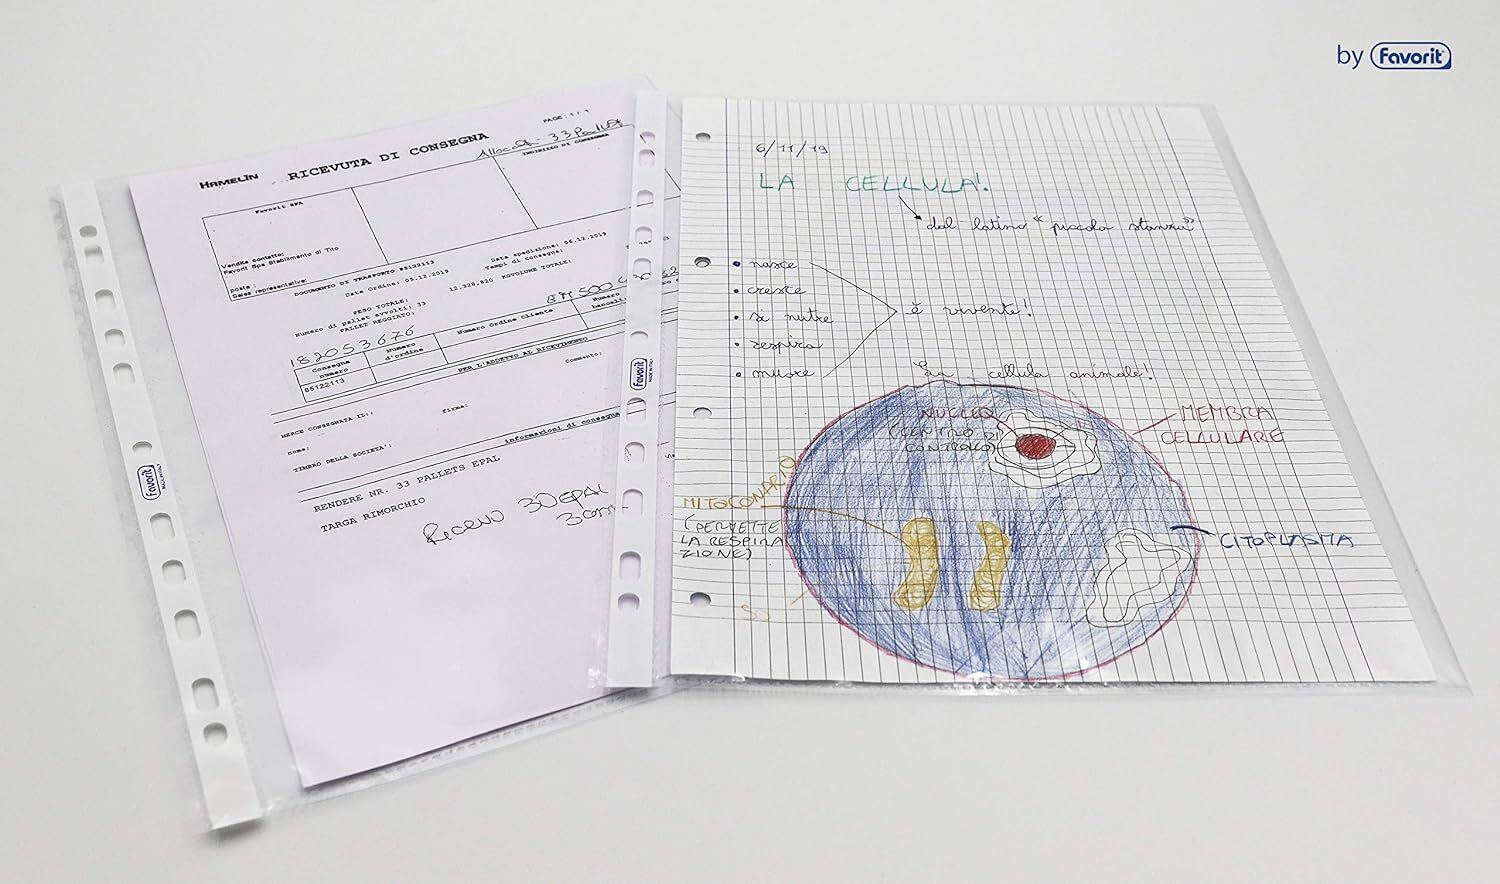 by Favorit
PAGE: 1 / 1
HAMELIN
RICEVUTA DI CONSEGNA
33
INDIRIZZO DI CONSEGNA
Favorit SPA
Vendite contatto:
Favorit Spa Stabilimento di Tito
posta :
Sales representative:
DOCUMENTO DI TRASPORTO 85122113
Data Ordine: 05.12.2019
Data spedizione: 06.12.2019
Tempi di consegna:
PESO TOTALE:
12.328,820 KGVOLUME TOTALE:
Numero di pallet avvolti: 33
PALLET REGGIATO:
182053676
Consegna numero
Numero d'ordine
Numero Ordine Cliente
Numero
85122113
PER L'ADDETTO AL RICEVIMENTO
Commento:
MERCE CONSEGNATA IL::
firma:
nome:
TIMBRO DELLA SOCIETA':
informazioni di consegna
RENDERE NR. 33 PALLETS EPAL
TARGA RIMORCHIO
30 EPAL
Favorit
MADE IN ITALY
Favorit
MADE IN ITALY
6/11/19
LA CELLULA!
dal latino "piccola stanza"
• nasce
• cresce
• si nutre
• respira
• muore
è vivente!
La cellula animale!
NUCLEO
(CENTRO DI
CONTROLLO)
MEMBRA
CELLULARE
MITOCONDRIO
(PERMETTE
LA RESPIRA
ZIONE)
CITOPLASMA